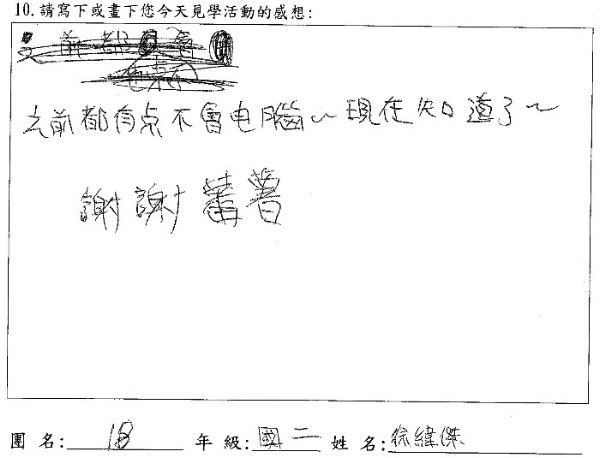 10.請寫下或畫下您今天見學活動的感想:
之前都有点不會电腦~現在知道了~
謝謝 署
團 名: 18 年 級: 國二 姓 名: 徐緯傑